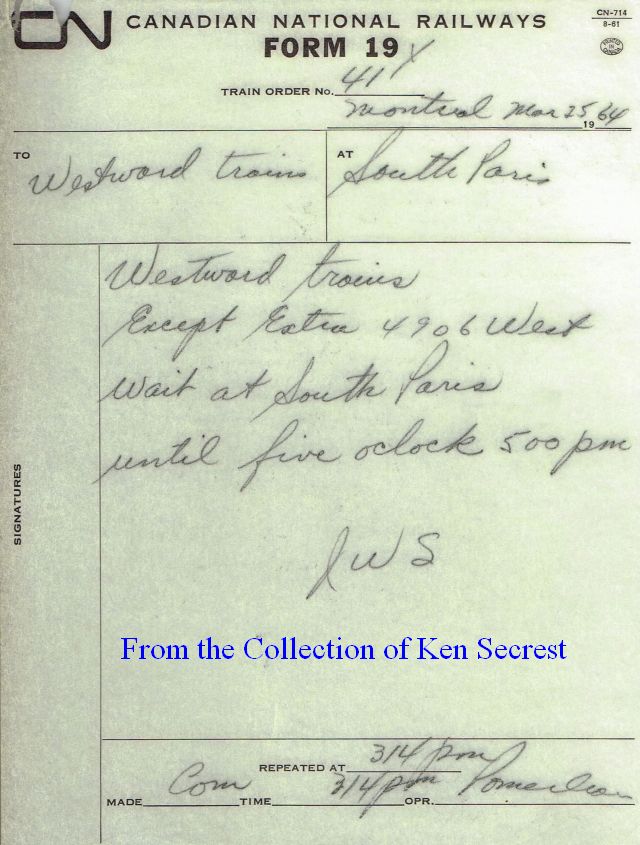 CN CANADIAN NATIONAL RAILWAYS
CN-714
8-61
PRINTED IN CANADA
FORM 19 Y
TRAIN ORDER No. 41
Montreal Mar 25 1964
TO Westward trains
AT South Paris
Westward trains
Except Extra 4906 West
Wait at South Paris
until five oclock 500 pm
JWS
SIGNATURES
From the Collection of Ken Secrest
REPEATED AT 314 pm
MADE Com TIME 314 pm OPR.